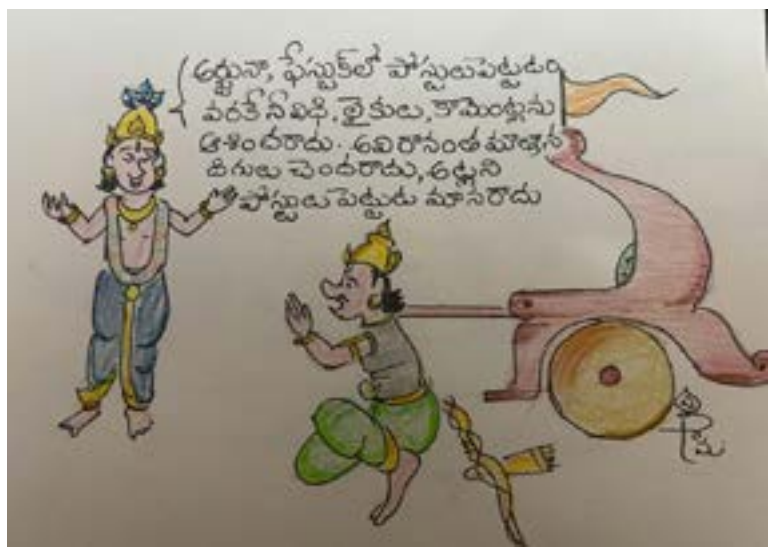 అర్జునా, ఫేస్బుక్‌లో పోస్టులుపెట్టడం
వరకే నీవిధి, లైకులు, కామెంట్లను
ఆశించరాదు. అవి రానంత మాత్రాన
దిగులు చెందరాదు, అట్లని
పోస్టులు పెట్టుట మానరాదు